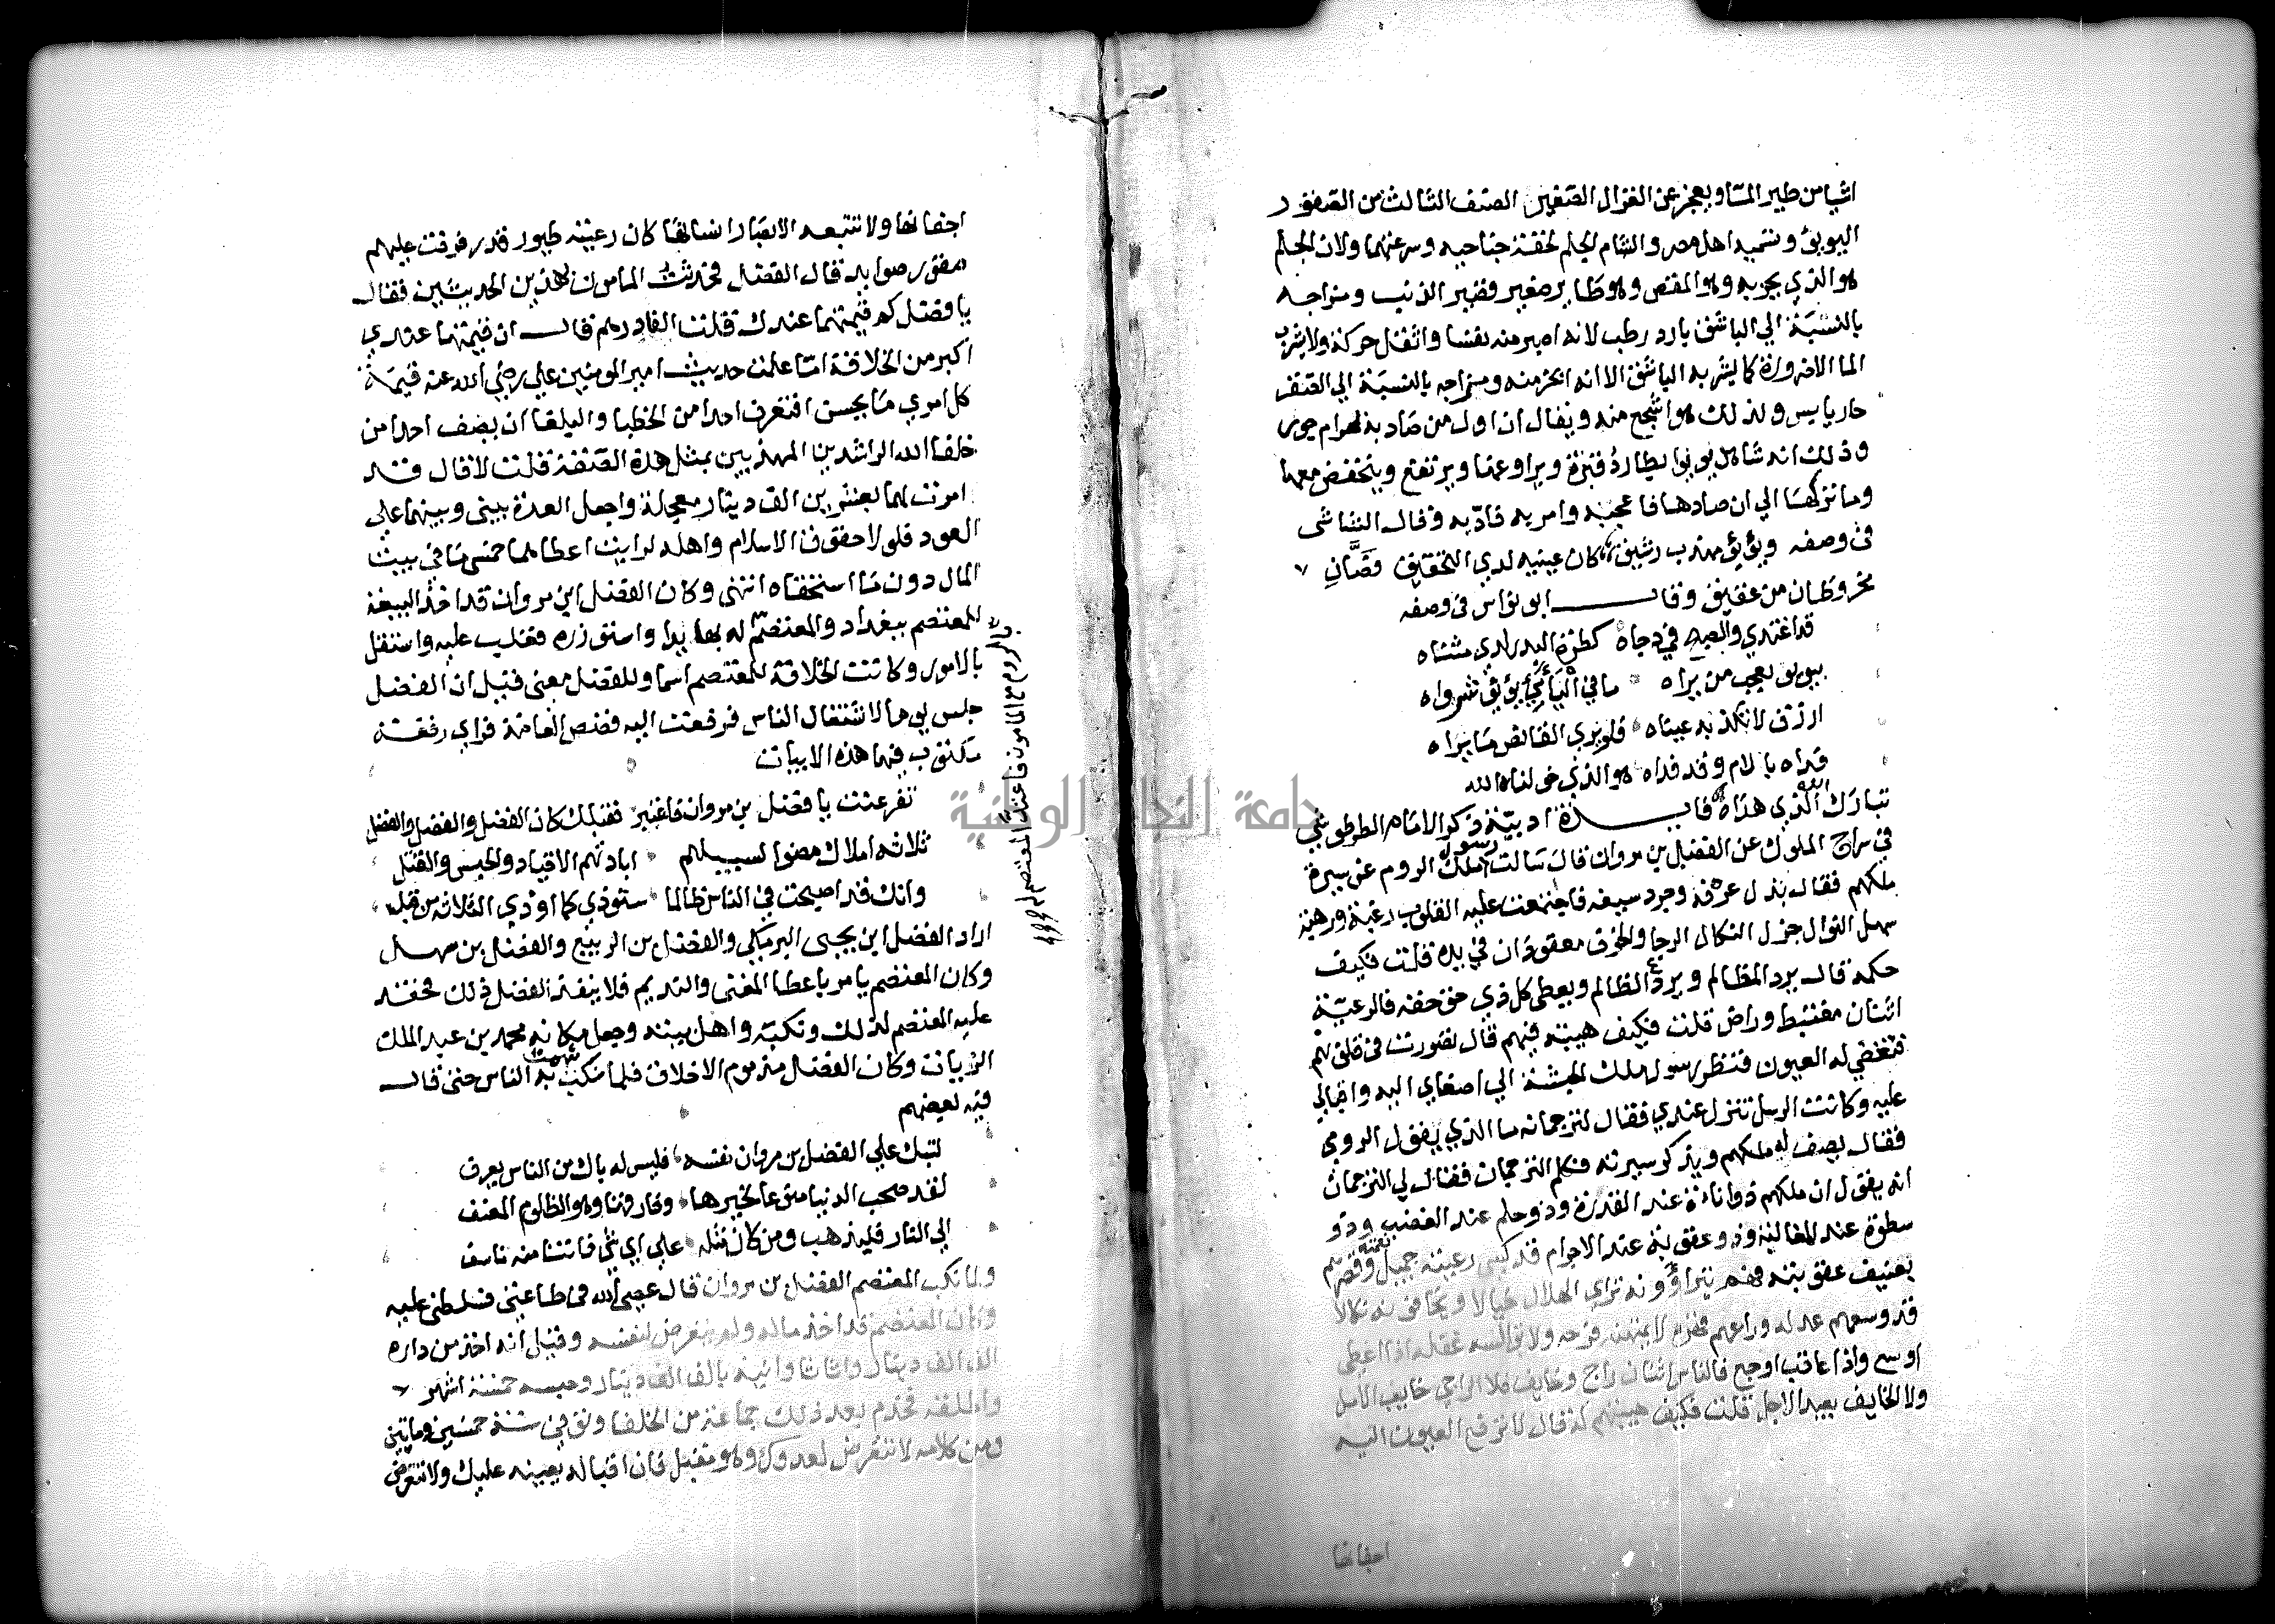 اشيا من طير الما ويعجز عن الغزال الصغير الصنف الثالث من الصقور
اليويو وتسميه اهل مصر والشام الجلم لخفة جناحيه وسرعتهما ولان الجلم
هو الذي يجز به وهو المقص وهو طاير صغير قصير الذنب ومزاجه
بالنسبة الي الباشق بارد رطب لانه اصبر منه نفسا واثقل حركة ولا يشرب
الما الا ضرورة كما يشربه الباشق الا انه ابخر منه ومزاجه بالنسبة الي الصقر
حار يابس ولذلك هو اشجع منه ويقال ان اول من صاد به بهرام جور
وذلك انه شاهد يويوا يطارد قنبرة ويراوغها ويرتفع وينخفض معها
وما تركها الي ان صادها فاعجبه وامر به فادب وقال الناشي
في وصفه ويؤيؤ مهذب رشيق كان عينيه لدي التحقيق فصان
مخروطان من عقيق وقال ابو نواس في وصفه
قد اغتدي والصبح في دجاه كطرة البدر لدي مثناه
بيويو يعجب من يراه ما في اليأيئ يؤيؤ شرواه
ازرق لا تكذبه عيناه فلو يري القانص ما يراه
فداه بالام وقد فداه هو الذي خولناه الله
تبارك الله الذي هداه فايدة ادبية ذكر الامام الطرطوشي
في سراج الملوك عن الفضل بن مروان قال سالت رسول ملك الروم عن سيرة
ملكهم فقال بذل عرفه وجرد سيفه فاجتمعت عليه القلوب رغبة ورهبة
سهل النوال جزل النكال الرجا والخوف معقودان في يده قلت فكيف
حكمه قال يرد المظالم ويردع الظالم ويعطي كل ذي حق حقه فالرعية
اثنان مغتبط وراض قلت فكيف هيبته فيهم قال تصورت في قلوبهم
فتغضي له العيون فنظر رسول ملك الحبشة الي اصغاي اليه واقبالي
عليه وكانت الرسل تنزل عندي فقال لترجمانه ما الذي يقول الرومي
فقال يصف له ملكهم ويذكر سيرته فكلم الترجمان فقال لي الترجمان
انه يقول ان ملكهم ذو اناة عند القدرة وذو حلم عند الغضب وذو
سطوة عند المغالبة وذو عقوبة عند الاجرام قد كسي رعيته جميل نعمته وقصرهم
بعنيف عقوبته فهم يتراؤونه تراي الهلال خيالا ويخافونه نكالا
قد وسعهم عدله وراعهم لا تمتهنه مزحه ولا توالسه غفله اذا اعطي
اوسع واذا عاقب اوجع فالناس اثنان راج وخايف فلا الراجي خايب الامل
ولا الخايف بعيد الاجل قلت فكيف هيبتهم له قال لا ترفع العيون اليه
اجفانها
اجفانها ولا تتبعه الابصار انسانها كان رعيته طيور فرفت عليهم
صقور صوايد قال الفضل فحدثت المامون بهذين الحديثين فقال
يا فضل كم قيمتهما عندك قلت الفا درهم قال ان قيمتهما عندي
اكبر من الخلافة اما علمت حديث امير المومنين علي رضي الله عنه قيمة
كل امري ما يحسن افتعرف احدا من الخطبا والبلغا ان يصف احدا من
خلفا الله الراشدين المهذبين بمثل هذه الصفة قلت لا قال فقد
امرت لهما بعشرين الف دينار معجلة واجعل العدة بيني وبينهما علي
العود فلولا حقوق الاسلام واهله لرايت اعطاهما جميع ما في بيت
المال دون ما استحقاه انتهي وكان الفضل ابن مروان قد اخذ البيعة
للمعتصم ببغداد والمعتصم له بها يدا واستوزره فغلب عليه واستقل
بالامور وكانت الخلافة للمعتصم اسما وللفضل معني قيل ان الفضل
جلس يوما لاشغال الناس فرفعت اليه قصص العامة فراي رقعة
مكتوب فيها هذه الابيات
تفرعنت يا فضل بن مروان فاعتبر فقبلك كان الفضل والفضل والفضل
ثلاثة املاك مضوا لسبيلهم ابادتهم الاقياد والحبس والقتل
وانك قد اصبحت في الناس ظالما ستوذي كما اوذي الثلاثة من قبل
اراد الفضل ابن يحيي البرمكي والفضل بن الربيع والفضل بن سهل
وكان المعتصم يامر باعطا المغني والنديم فلا ينفذ الفضل ذلك فحقد
عليه المعتصم لذلك ونكبه واهل بيته وجعل مكانه محمد بن عبد الملك
الزيات وكان الفضل مذموم الاخلاق فلما نكب شمت به الناس حتي قال
فيه بعضهم
لتبك علي الفضل بن مروان نفسه فليس له باك من الناس يعرف
لقد صحب الدنيا منوعا لخيرها وفارقها وهو الظلوم المعنف
الي النار فليذهب ومن كان مثله علي اي شي فاتنا منه ناسف
ولما نكب المعتصم الفضل بن مروان قال عصي الله في طاعتي فسلطني عليه
وكان المعتصم قد اخذ ماله ولم يتعرض لنفسه وقيل انه اخذ من داره
الف الف دينار واثاثا وانية بالف الف دينار وحبسه خمسة اشهر
واطلقه فخدم بعد ذلك جماعة من الخلفا وتوفي سنة خمسين ومايتين
ومن كلامه لا تتعرض لعدوك وهو مقبل فان اقباله يعينه عليك ولا تتعرض